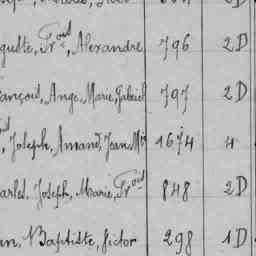 guste, Fr^ois, Alexandre 796 2D
ançois, Ange, Marie, Gabriel 797 2D
, Joseph, Amand, Jean M^ie 1674 4
arles, Joseph, Marie, Fr^ois 848 2D
an, Baptiste, Victor 298 1D